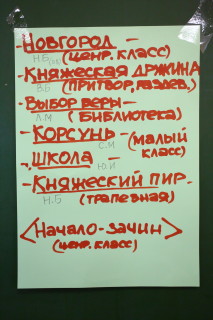 -НОВГОРОД -
Н.Б (ценр. класс)
-КНЯЖЕСКАЯ ДРУЖИНА
В.Б (притвор, раздев.)
-ВЫБОР ВЕРЫ -
Л.М (библиотека)
- КОРСУНЬ - (малый класс)
С.И
- ШКОЛА -
Ю.И
- КНЯЖЕСКИЙ ПИР.
Н.Б (трапезная)
<НАЧАЛО-ЗАЧИН>
(ценр. класс)